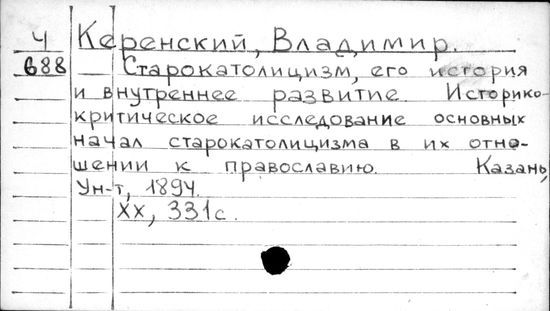 Ч Керенский, Владимир.
688 Старокатолицизм, его история
и внутреннее развитие. Историко-
критическое исследование основных
начал старокатолицизма в их отно-
шении к православию. Казань,
Ун-т, 1894.
XX, 331с.